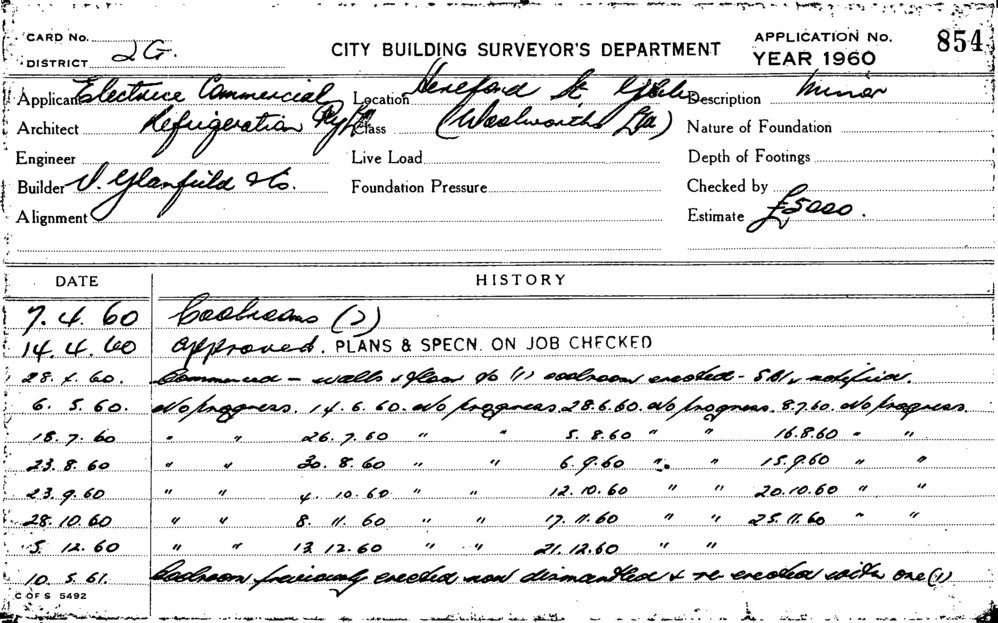 CARD No.
DISTRICT 2G.
CITY BUILDING SURVEYOR'S DEPARTMENT
APPLICATION No. 854
YEAR 1960
Applicant Electrice Commercial Location Hereford St Glebe Description Minor
Architect Refrigeration Pty Ltd Class (Woolworths Ltd) Nature of Foundation
Engineer Live Load Depth of Footings
Builder V. Glanfield & Co. Foundation Pressure Checked by
Alignment Estimate £5000.
DATE HISTORY
7. 4. 60 Coolrooms (2)
14. 4. 60 Approved. PLANS & SPECN. ON JOB CHECKED
28. 4. 60. Commenced - walls & floor to (1) coolroom erected - SBI notified.
6. 5. 60. No progress. 14. 6. 60. No progress. 28.6.60. No progress. 8.7.60. No progress.
18. 7. 60 " " 26. 7. 60 " " 5. 8. 60 " " 16.8.60 " "
23. 8. 60 " " 30. 8. 60 " " 6. 9. 60 " " 15.9.60 " "
23. 9. 60 " " 4. 10. 60 " " 12. 10. 60 " " 20.10.60 " "
28. 10. 60 " " 8. 11. 60 " " 17. 11. 60 " " 25.11.60 " "
5. 12. 60 " " 13 12.60 " " 21. 12.60 " "
10. 5. 61. Coolroom previously erected now dismantled & re erected with one (1)
C OF S 5492